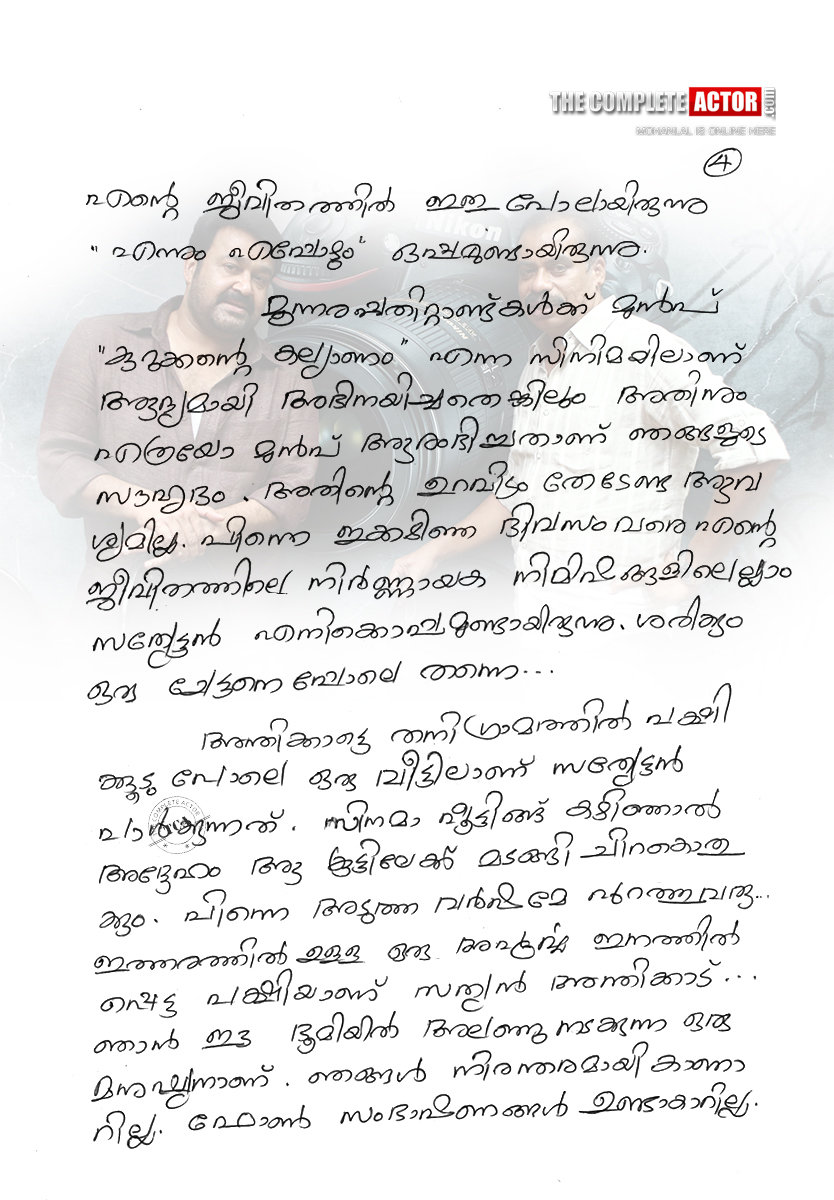 THE COMPLETE ACTOR.com
MOHANLAL IS ONLINE HERE
4
എന്റെ ജീവിതത്തിൽ ഇതുപോലായിരുന്നു
"എന്നും എപ്പോഴും" ഒപ്പമുണ്ടായിരുന്നു.
മൂന്നരപ്പതിറ്റാണ്ടുകൾക്ക് മുൻപ്
"കുറുക്കന്റെ കല്യാണം" എന്ന സിനിമയിലാണ്
ആദ്യമായി അഭിനയിച്ചതെങ്കിലും അതിനും
എത്രയോ മുൻപ് ആരംഭിച്ചതാണ് ഞങ്ങളുടെ
സൗഹൃദം. അതിന്റെ ഉറവിടം തേടേണ്ട ആവ
ശ്യമില്ല. പിന്നെ ഇക്കഴിഞ്ഞ ദിവസം വരെ എന്റെ
ജീവിതത്തിലെ നിർണ്ണായക നിമിഷങ്ങളിലെല്ലാം
സത്യേട്ടൻ എനിക്കൊപ്പമുണ്ടായിരുന്നു. ശരിക്കും
ഒരു ചേട്ടനെപ്പോലെ തന്നെ...
അന്തിക്കാട്ടെ തനിഗ്രാമത്തിൽ പക്ഷി
ക്കൂടു പോലെ ഒരു വീട്ടിലാണ് സത്യേട്ടൻ
പാർക്കുന്നത്. സിനിമാ ഷൂട്ടിങ്ങ് കഴിഞ്ഞാൽ
അദ്ദേഹം ആ കൂട്ടിലേക്ക് മടങ്ങി ചിറകൊതു
ക്കും. പിന്നെ അടുത്ത വർഷമേ പുറത്തുവരൂ...
ഇത്തരത്തിൽ ഉള്ള ഒരു അപൂർവ്വ ഇനത്തിൽ
പ്പെട്ട പക്ഷിയാണ് സത്യൻ അന്തിക്കാട്...
ഞാൻ ഈ ഭൂമിയിൽ അലഞ്ഞു നടക്കുന്ന ഒരു
മനുഷ്യനാണ്. ഞങ്ങൾ നിരന്തരമായി കാണാ
റില്ല. ഫോൺ സംഭാഷണങ്ങൾ ഉണ്ടാകാറില്ല.
Nikon